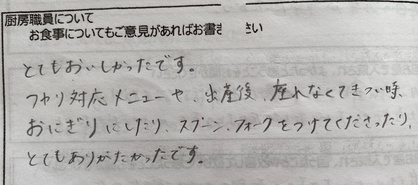 厨房職員について
お食事についてもご意見があればお書き さい
とてもおいしかったです。
つわり対応メニューや、出産後、座れなくてきつい時、
おにぎりにしたり、スプーン、フォークをつけてくださったり、
とてもありがたかったです。